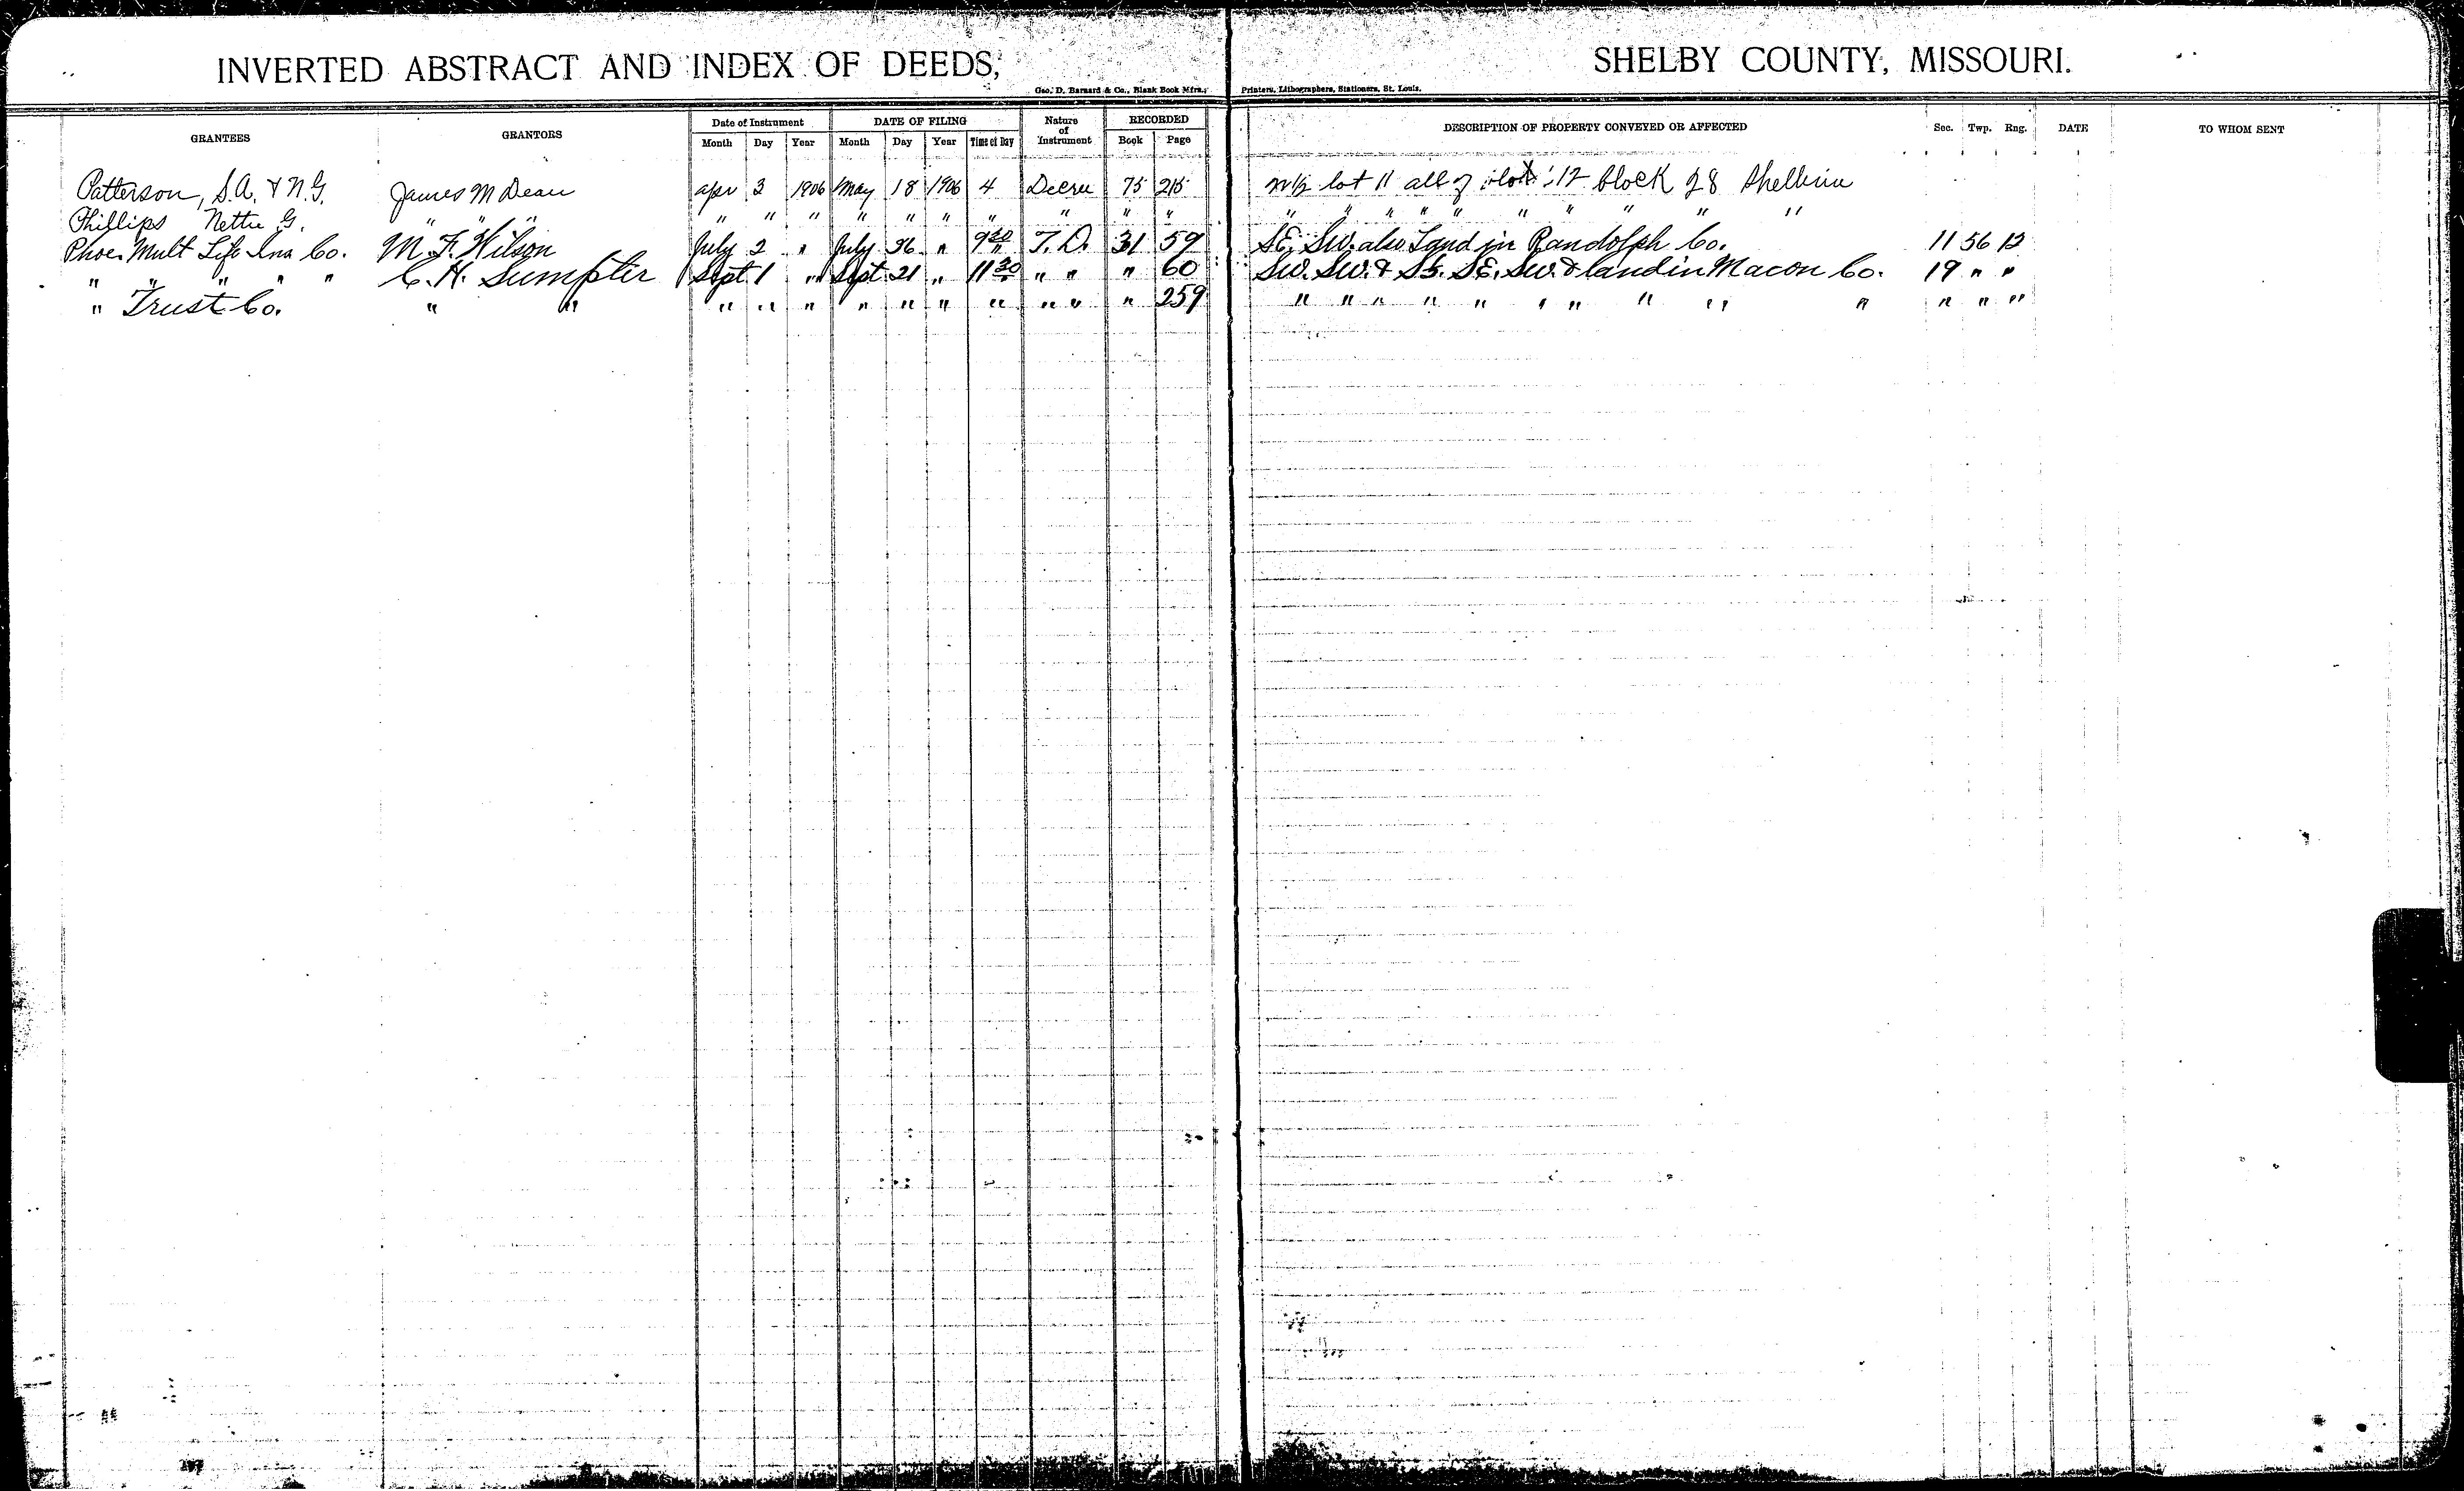 INVERTED ABSTRACT AND INDEX OF DEEDS, SHELBY COUNTY, MISSOURI.
Geo. D. Barnard & Co., Blank Book Mfrs., Printers, Lithographers, Stationers, St. Louis.
GRANTEES GRANTORS Date of Instrument DATE OF FILING Nature of Instrument RECORDED DESCRIPTION OF PROPERTY CONVEYED OR AFFECTED Sec. Twp. Rng. DATE TO WHOM SENT
Month Day Year Month Day Year Time of Day Book Page
Patterson, S.A. & N.G. James M Dean apr 3 1906 May 18 1906 4 Decree 75 215 lot 11 all of lot 12 block 28 Shelbina
Phillips Nettie G. " " " " " " " " " " " " " " " " " " " " " " "
Phoe. Mult Life Ins Co. M. F. Wilson July 2 " July 26 " 9 T.D. 31 59 SE. SW. also Land in Randolph Co. 11 56 12
" " " " " C. H. Sumpter Sept. 1 " Sept. 21 " 11 30 " " " 60 SW. SW. & SE. SW. & land in Macon Co. 19 " "
" Trust Co. " " " " " " " " " " " " 259 " " " " " " " " " " " " "